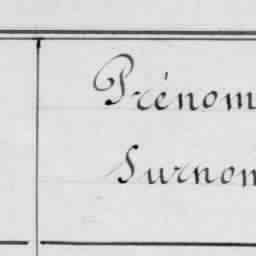 Prénom
Surnom